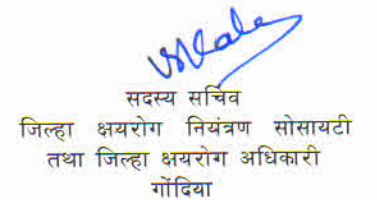 सदस्य सचिव
जिल्हा क्षयरोग नियंत्रण सोसायटी
तथा जिल्हा क्षयरोग अधिकारी
गोंदिया